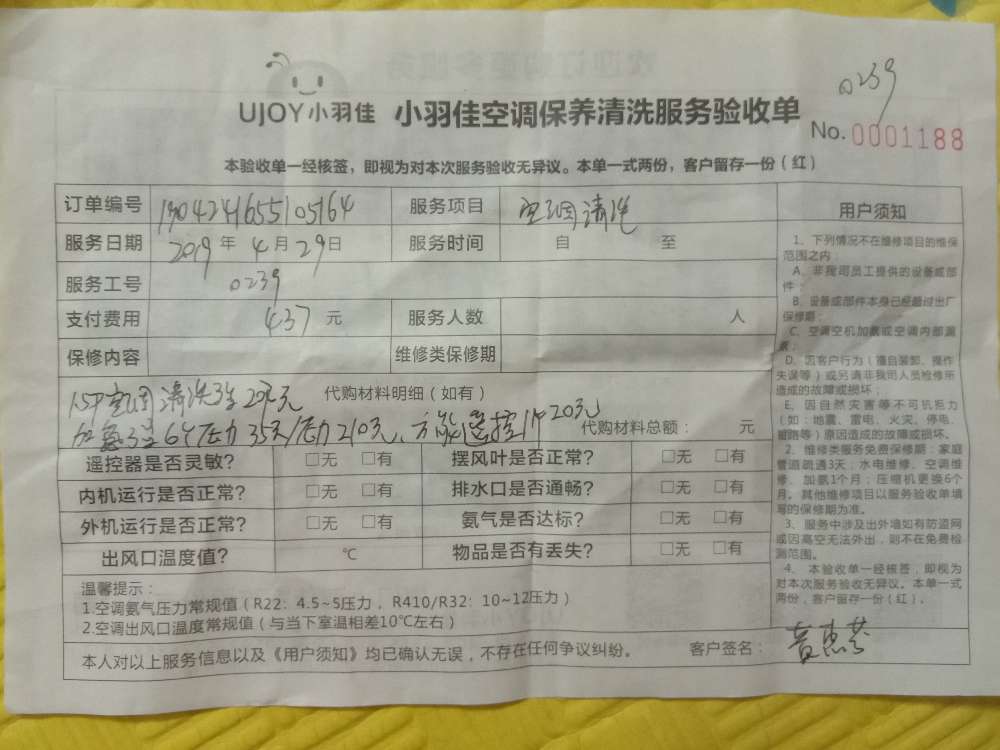 0239
UJOY小羽佳 小羽佳空调保养清洗服务验收单
No. 0001188
本验收单一经核签，即视为对本次服务验收无异议。本单一式两份，客户留存一份（红）
订单编号 1904241655105164 服务项目 空调清洗
服务日期 2019 年 4 月 29 日 服务时间 自 至
服务工号 0239
支付费用 437 元 服务人数 人
保修内容 维修类保修期
空调清洗 元 代购材料明细（如有）
加氨 6个压力 35元/压力210元、万能遥控1个20元 代购材料总额： 元
遥控器是否灵敏？ □无 □有 摆风叶是否正常？ □无 □有
内机运行是否正常？ □无 □有 排水口是否通畅？ □无 □有
外机运行是否正常？ □无 □有 氨气是否达标？ □无 □有
出风口温度值？ ℃ 物品是否有丢失？ □无 □有
温馨提示：
1.空调氨气压力常规值（R22：4.5~5压力，R410/R32：10~12压力）
2.空调出风口温度常规值（与当下室温相差10℃左右）
本人对以上服务信息以及《用户须知》均已确认无误，不存在任何争议纠纷。 客户签名：
用户须知
1、下列情况不在维修项目的维保
范围之内：
A、非我司员工提供的设备或部
件；
B、设备或部件本身已经超过出厂
保修期；
C、空调空机加氨或空调内部漏
氨；
D、因客户行为（擅自装卸、操作
失误等）或另请非我司人员检修所
造成的故障或损坏；
E、因自然灾害等不可抗拒力
（如：地震、雷电、火灾、停电、
短路等）原因造成的故障或损坏。
2、维修类服务免费保修期：家庭
管道疏通3天；水电维修、空调维
修、加氨1个月；压缩机更换6个
月。其他维修项目以服务验收单填
写的保修期为准。
3、服务中涉及出外墙如有防盗网
或因高空无法外出，则不在免费检
测范围。
4、本验收单一经核签，即视为
对本次服务验收无异议。本单一式
两份，客户留存一份（红）。